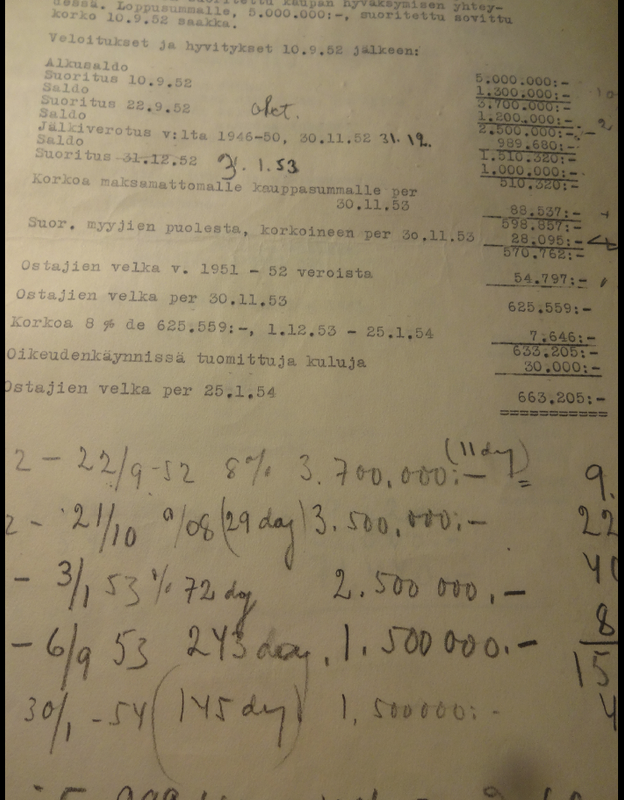 dessä. Loppusummalle, 5.000.000:-, suoritettu sovittu
korko 10.9.52 saakka.
Veloitukset ja hyvitykset 10.9.52 jälkeen:
Alkusaldo 5.000.000:-
Suoritus 10.9.52 1.300.000:-
Saldo 3.700.000:-
Suoritus 22.9.52 1.200.000:-
Saldo 2.500.000:-
Jälkiverotus v:lta 1946-50, 30.11.52 31.12. 989.680:-
Saldo 1.510.320:-
Suoritus 31.12.52 31.1.53 1.000.000:-
510.320:-
Korkoa maksamattomalle kauppasummalle per
30.11.53 88.537:-
598.857:-
Suor. myyjien puolesta, korkoineen per 30.11.53 28.095:-
570.762:-
Ostajien velka v. 1951 - 52 veroista 54.797:-
Ostajien velka per 30.11.53 625.559:-
Korkoa 8 % de 625.559:-, 1.12.53 - 25.1.54 7.646:-
633.205:-
Oikeudenkäynnissä tuomittuja kuluja 30.000:-
Ostajien velka per 25.1.54 663.205:-
2 - 22/9-52 8% 3.700,000:- (11 day) 9.
21/10 (29 day) 3.500,000:- 22
- 3/1 53 % 72 day 2.500 000,- 40
- 6/9 53 243 day, 1.500000.- 8
15
30/1 -54 (145 day) 1,500000:- 4